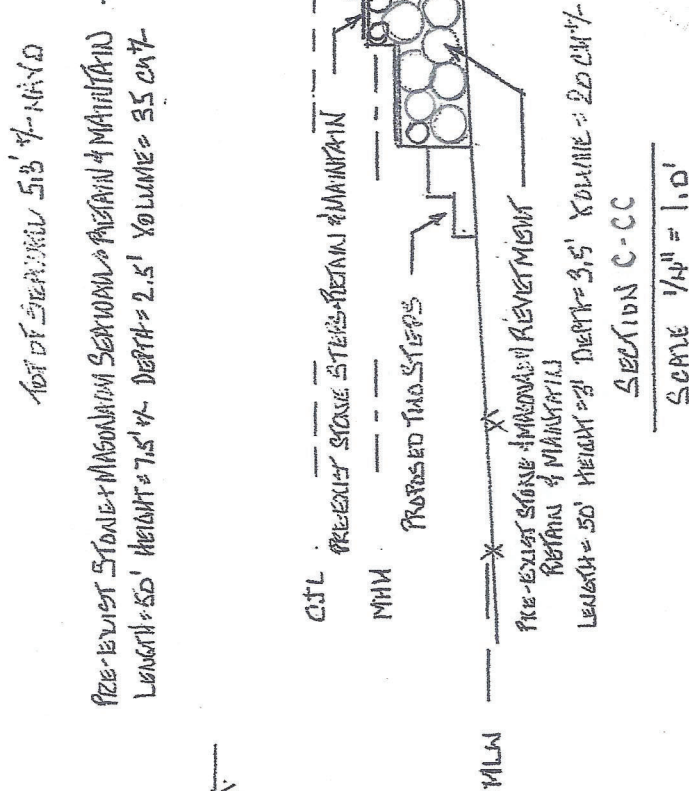 TOP OF SEAWALL 5.8' +/- NAVD
PRE-EXIST STONE & MASONARY SEAWALL RETAIN & MAINTAIN
LENGTH = 50' HEIGHT = 7.5' +/- DEPTH = 2.5' VOLUME = 35 CY +/-
CJL
PRE-EXIST STONE STEPS RETAIN & MAINTAIN
MHW
PROPOSED TWO STEPS
MLW
PRE-EXIST STONE & MASONARY REVETMENT
RETAIN & MAINTAIN
LENGTH = 50' HEIGHT = 3' DEPTH = 3.5' VOLUME = 20 CY +/-
SECTION C-CC
SCALE 1/4" = 1.0'